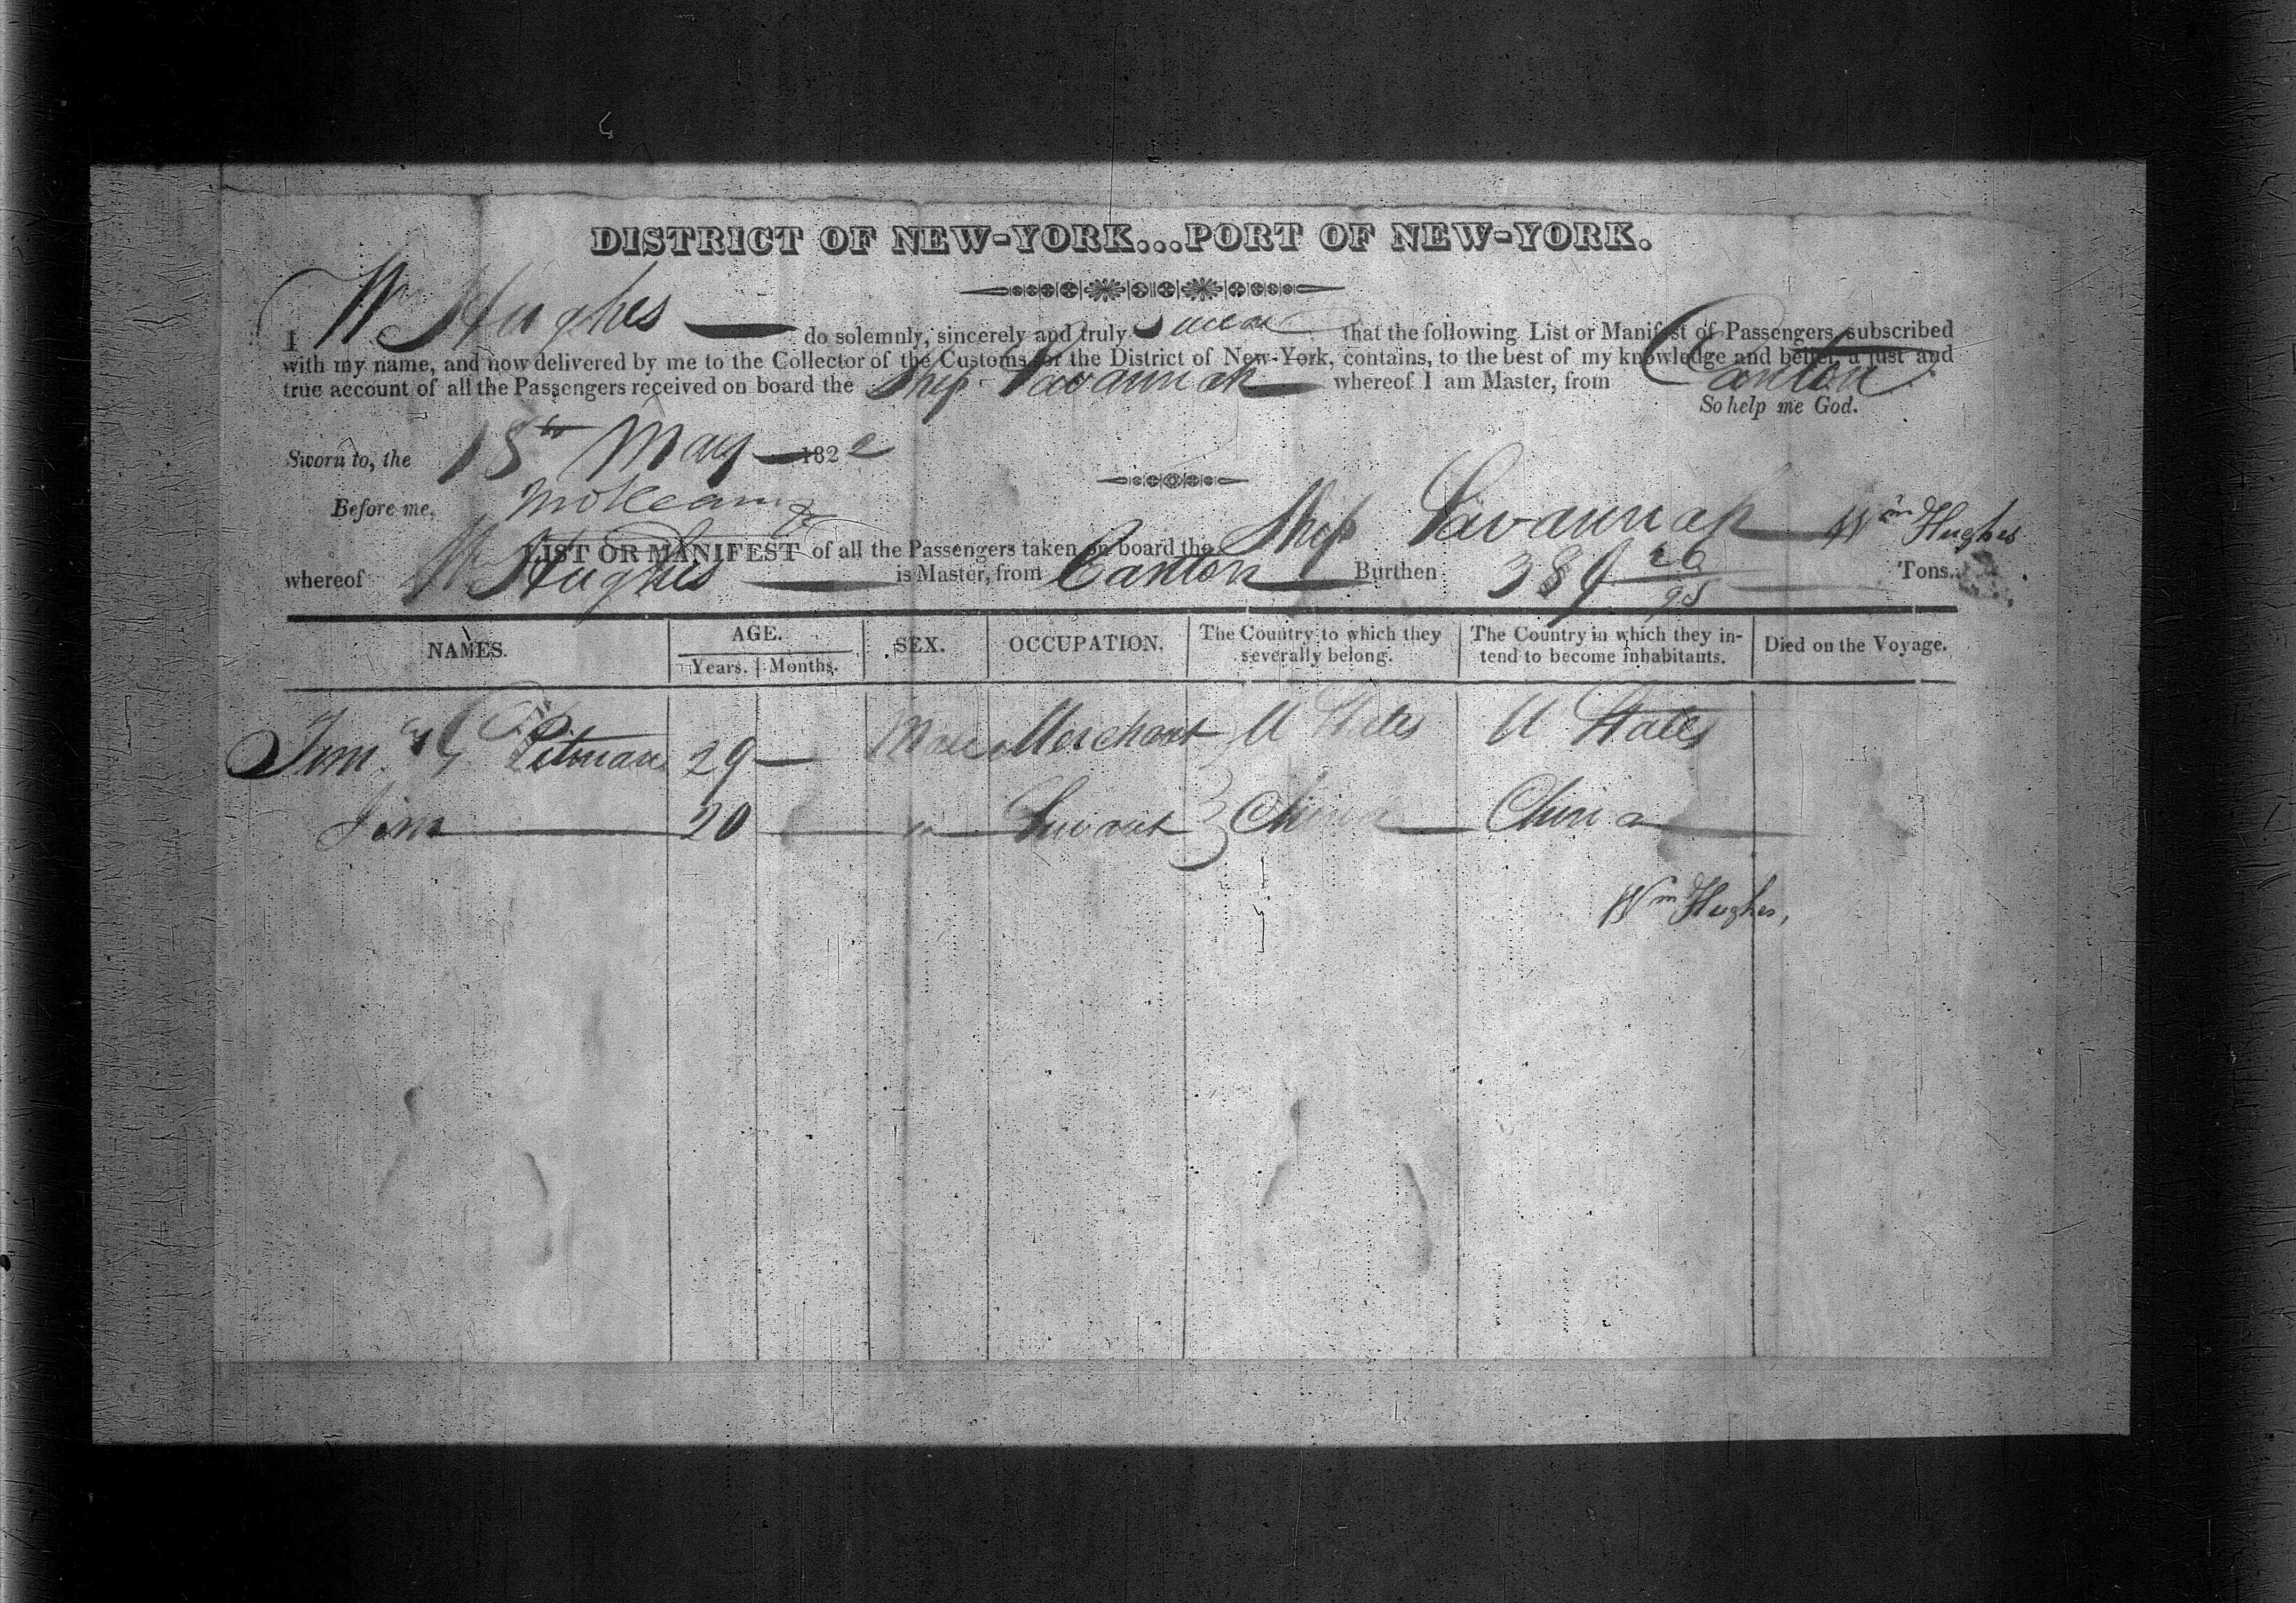 DISTRICT OF NEW-YORK...PORT OF NEW-YORK.
I W Hughes do solemnly, sincerely and truly Swear that the following List or Manifest of Passengers, subscribed
with my name, and now delivered by me to the Collector of the Customs for the District of New-York, contains, to the best of my knowledge and belief, a just and
true account of all the Passengers received on board the Ship Savannah whereof I am Master, from Canton
So help me God.
Sworn to, the 15th May 1822
Before me,
Wm Hughes
LIST OR MANIFEST of all the Passengers taken on board the Ship Savannah
whereof W Hughes is Master, from Canton Burthen 389 26/95 Tons.
NAMES. AGE. SEX. OCCUPATION. The Country to which they severally belong. The Country in which they intend to become inhabitants. Died on the Voyage.
Years. Months.
Pitman 29 Male Merchant U States U States
Jim 20 " Servant China China
Wm Hughes,